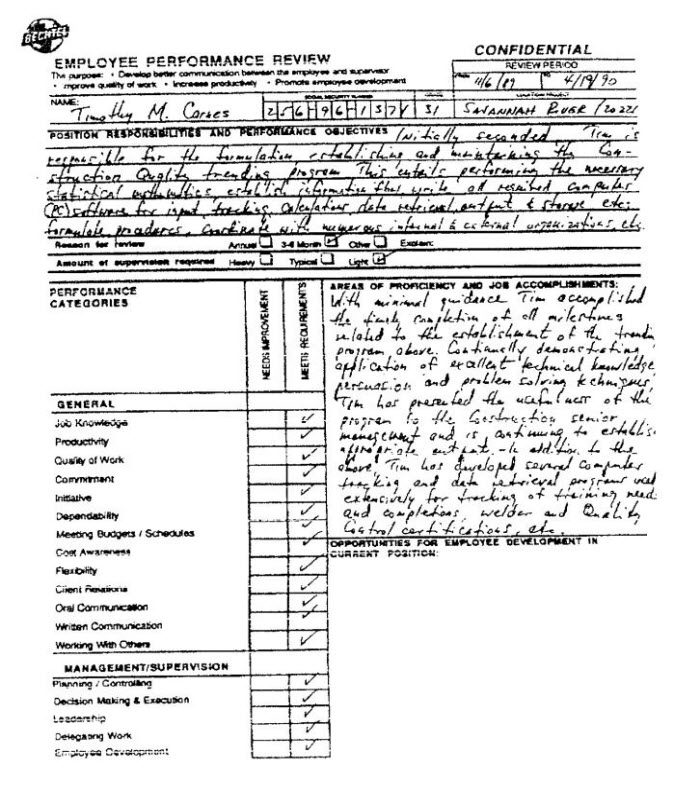 BECHTEL
CONFIDENTIAL
EMPLOYEE PERFORMANCE REVIEW
REVIEW PERIOD
The purpose: • Develop better communication between the employee and supervisor
• improve quality of work • Increase productivity • Promote employee development
11/6/89 TO 4/19/90
NAME:
SOCIAL SECURITY NUMBER
Timothy M. Carnes 31 SAVANNAH RIVER
POSITION RESPONSIBILITIES AND PERFORMANCE OBJECTIVES Initially seconded Tim is
responsible for the formulation, establishing and maintaining the Con-
struction Quality trending program This entails performing the necessary
statistical mathmatics, establish information flow write all required computer
(PC) software for input tracking, calculations, data retrieval, output & storage etc.
formulate procedures, coordinate with numerous internal & external organizations, etc
Reason for review Annual 3-6 Month Other Explain:
Amount of supervision required Heavy Typical Light
PERFORMANCE
CATEGORIES
NEEDS IMPROVEMENT
MEETS REQUIREMENTS
GENERAL
Job Knowledge
Productivity
Quality of Work
Commitment
Initiative
Dependability
Meeting Budgets / Schedules
Cost Awareness
Flexibility
Client Relations
Oral Communication
Written Communication
Working With Others
MANAGEMENT/SUPERVISION
Planning / Controlling
Decision Making & Execution
Leadership
Delegating Work
Employee Development
AREAS OF PROFICIENCY AND JOB ACCOMPLISHMENTS:
With minimal guidance Tim accomplished
the timely completion of all milestones
related to the establishment of the trendin
program above. Continually demonstrating
application of excellent technical knowledge
persuasion and problem solving techniques,
Tim has presented the usefulness of the
program to the Construction senior
management and is continuing to establis
appropriate output. In addition to the
above, Tim has developed several computer
tracking and data retrieval programs used
extensively for tracking of training need
and completions, welder and Quality
Control certifications, etc.
OPPORTUNITIES FOR EMPLOYEE DEVELOPMENT IN
CURRENT POSITION: